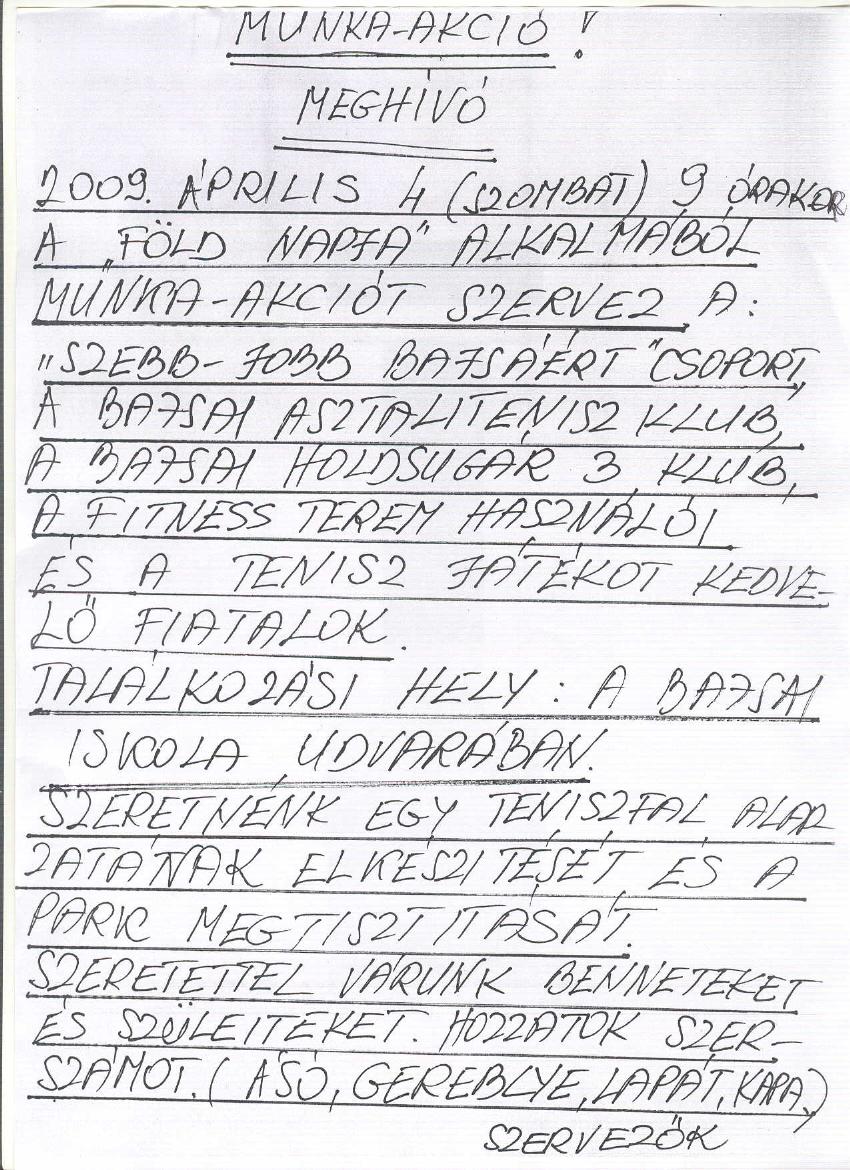 MUNKA-AKCIÓ!
MEGHÍVÓ
2009. ÁPRILIS 4 (SZOMBAT) 9 ÓRAKOR
A „FÖLD NAPJA" ALKALMÁBÓL
MUNKA-AKCIÓT SZERVEZ A:
„SZEBB-JOBB BAJSÁÉRT" CSOPORT,
A BAJSAI ASZTALITENISZ KLUB,
A BAJSAI HOLDSUGÁR 3 KLUB,
A FITNESS TEREM HASZNÁLÓI
ÉS A TENISZ JÁTÉKOT KEDVE-
LŐ FIATALOK.
TALÁLKOZÁSI HELY: A BAJSAI
ISKOLA UDVARÁBAN.
SZERETNÉNK EGY TENISZFAL ALAP
ZATÁNAK ELKÉSZITÉSÉT ÉS A
PARK MEGTISZTITÁSÁT.
SZERETETTEL VÁRUNK BENNETEKET
ÉS SZÜLEITEKET. HOZZATOK SZER-
SZÁMOT. (ÁSÓ, GEREBLYE, LAPÁT, KAPA,)
SZERVEZŐK